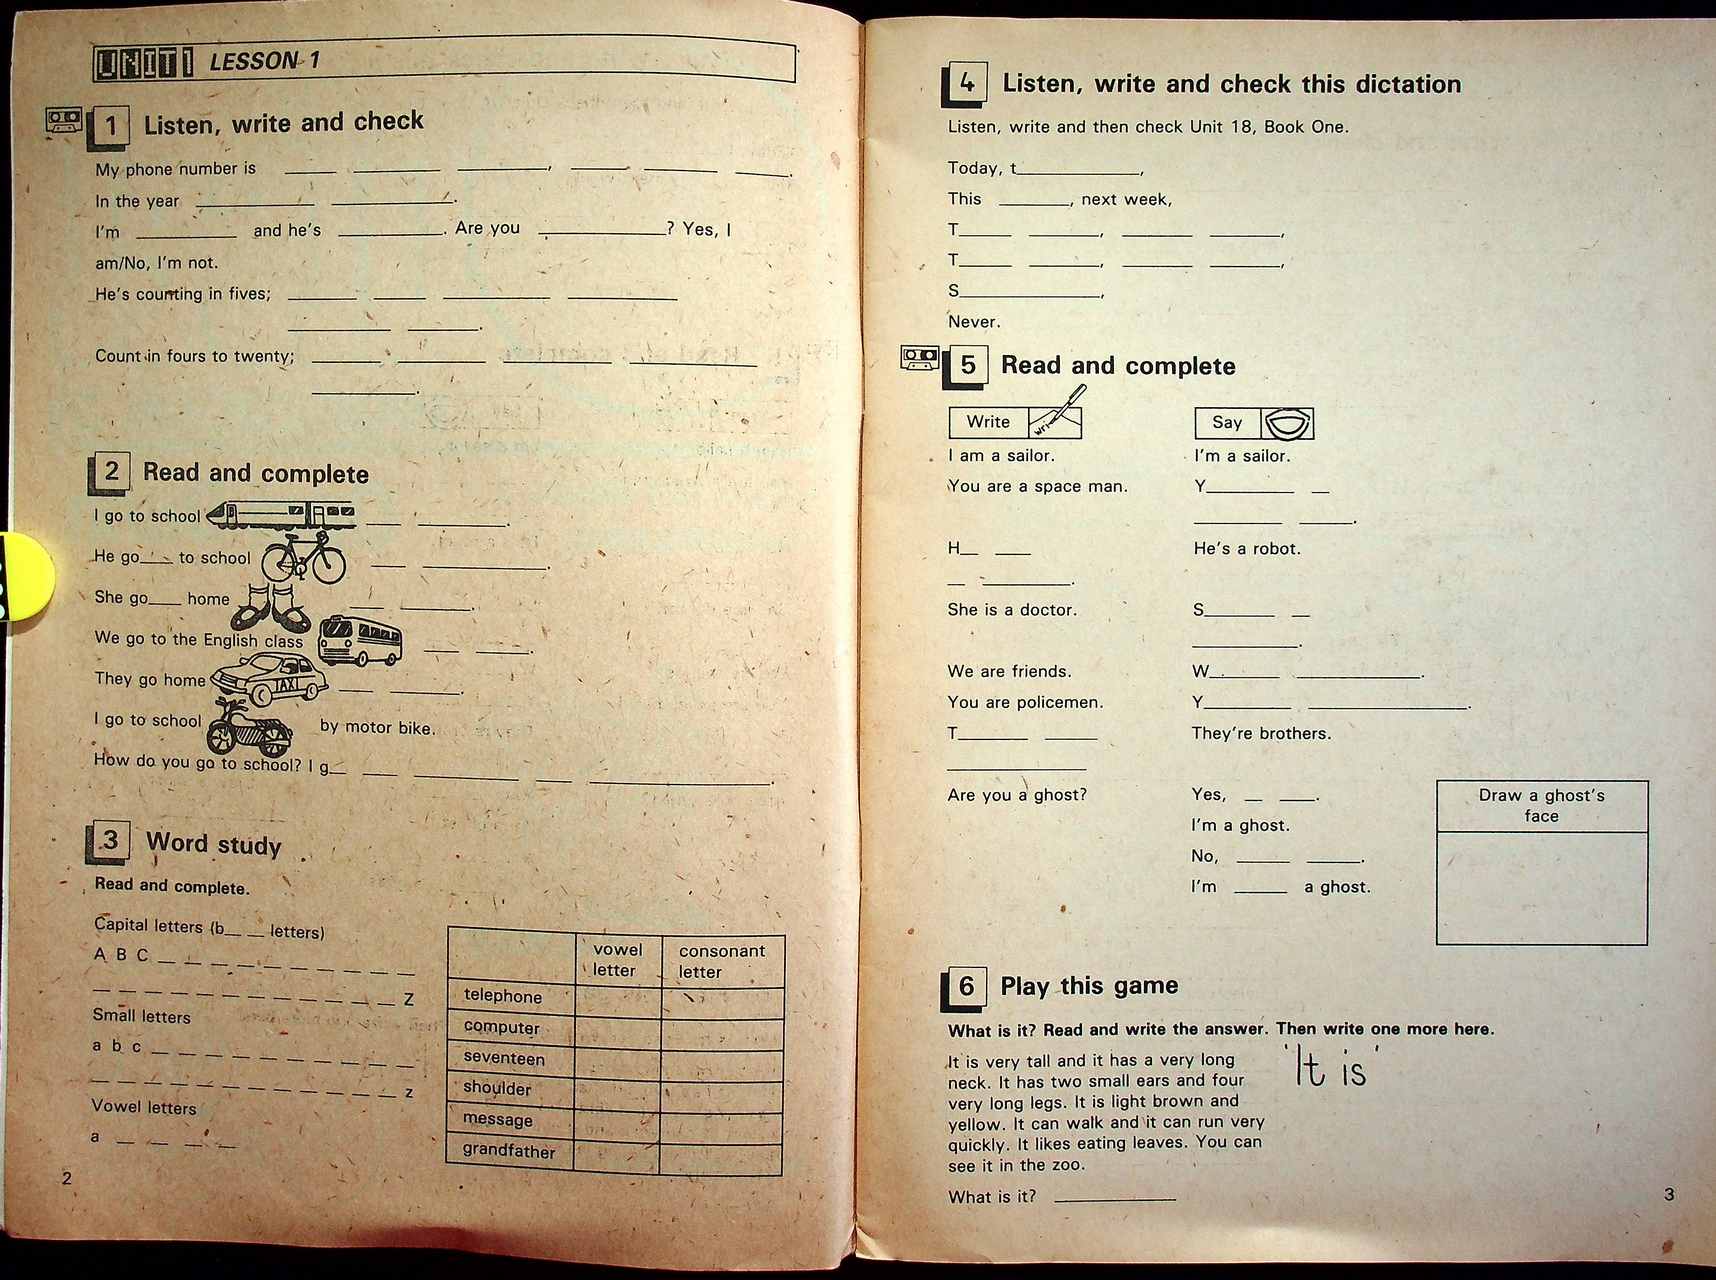 UNIT 1 LESSON 1
1 Listen, write and check
My phone number is ____ ____ ____, ____ ____ ____.
In the year ____ ____.
I'm ____ and he's ____. Are you ____? Yes, I
am/No, I'm not.
He's counting in fives; ____ ____ ____ ____
____ ____.
Count in fours to twenty; ____ ____ ____ ____
____.
2 Read and complete
I go to school ____ ____.
He go____ to school ____ ____.
She go____ home ____ ____.
We go to the English class ____ ____.
They go home TAXI ____ ____.
I go to school by motor bike.
How do you go to school? I g__ ____ ____ ____ ____.
3 Word study
Read and complete.
Capital letters (b__ __ letters)
A B C _ _ _ _ _ _ _ _ _ _
_ _ _ _ _ _ _ _ _ _ _ _ Z
Small letters
a b c _ _ _ _ _ _ _ _ _ _
_ _ _ _ _ _ _ _ _ _ _ _ z
Vowel letters
a _ _ _ _
vowel letter consonant letter
telephone
computer
seventeen
shoulder
message
grandfather
2
4 Listen, write and check this dictation
Listen, write and then check Unit 18, Book One.
Today, t____,
This ____, next week,
T____ ____, ____ ____,
T____ ____, ____ ____,
S____,
Never.
5 Read and complete
Write Say
I am a sailor. I'm a sailor.
You are a space man. Y____ __
____ ____.
H__ ____ He's a robot.
__ ____.
She is a doctor. S____ __
____.
We are friends. W____ ____.
You are policemen. Y____ ____.
T____ ____ They're brothers.
____
Are you a ghost? Yes, __ ____.
I'm a ghost.
No, ____ ____.
I'm ____ a ghost.
Draw a ghost's
face
6 Play this game
What is it? Read and write the answer. Then write one more here.
It is very tall and it has a very long
neck. It has two small ears and four
very long legs. It is light brown and
yellow. It can walk and it can run very
quickly. It likes eating leaves. You can
see it in the zoo.
What is it? ____
'It is'
3